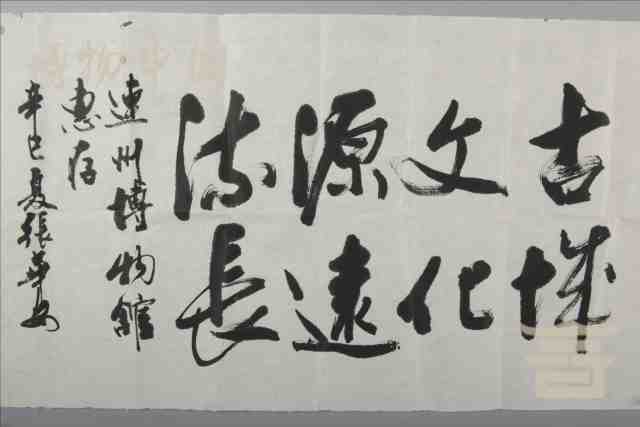 古城
文化
源远
流長
連州博物館
惠存
辛巳夏張華安